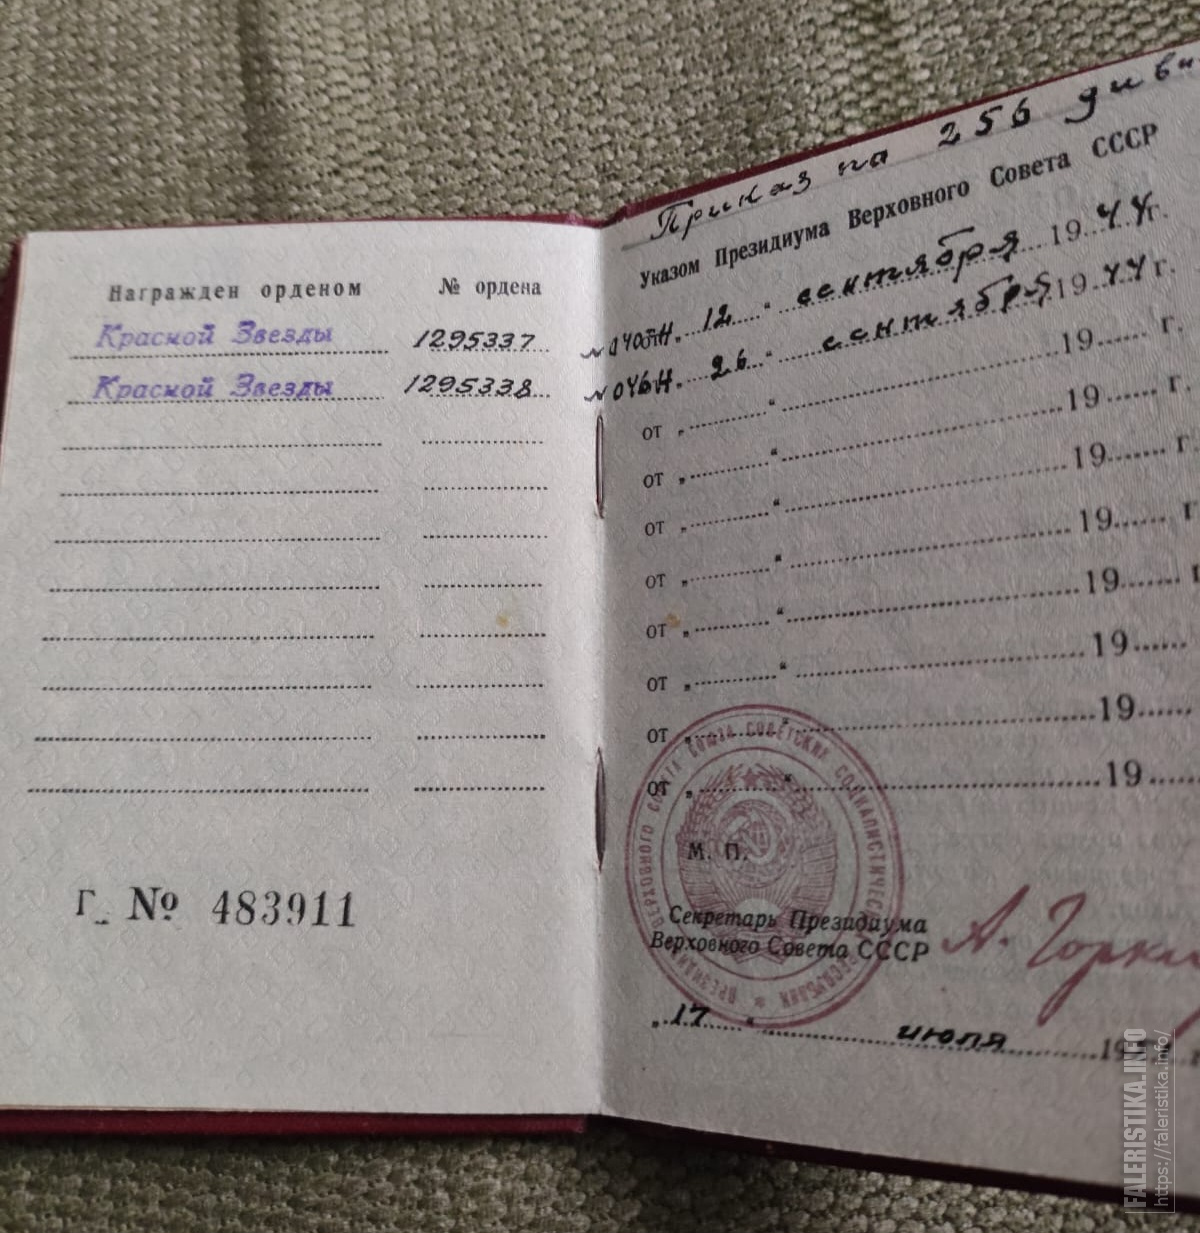 Награжден орденом № ордена
Красной Звезды 1295337
Красной Звезды 1295338
Г. № 483911
Приказ по 256 дивиз
Указом Президиума Верховного Совета СССР
№ 040/Н. 12 " сентября 1944 г.
№ 046/Н. 26 " сентября 1944 г.
от „ " 19 г.
от „ " 19 г.
от „ " 19 г.
от „ " 19 г.
от „ " 19 г.
от „ " 19
от „ " 19
от „ " 19
М. П.
Секретарь Президиума
Верховного Совета СССР А. Горки
„ 17 " июля 19 г
ПРЕЗИДИУМ ВЕРХОВНОГО СОВЕТА СОЮЗА СОВЕТСКИХ СОЦИАЛИСТИЧЕСКИХ РЕСПУБЛИК
FALERISTIKA.INFO
https://faleristika.info/